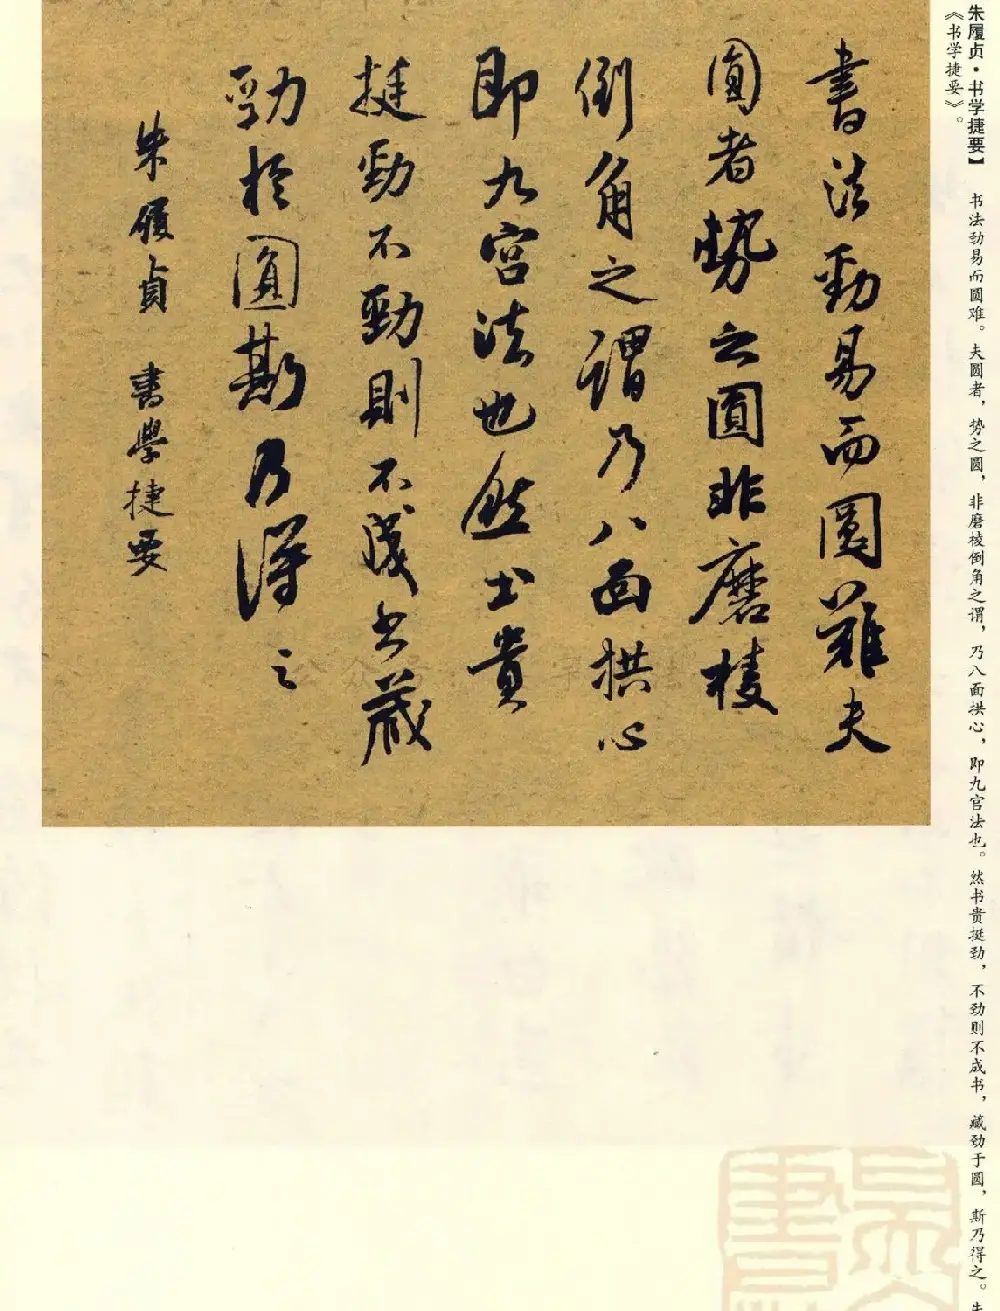 朱履贞·书学捷要】 书法劲易而圆难。夫圆者，势之圆，非磨棱倒角之谓，乃八面拱心，即九宫法也。然书贵挺劲，不劲则不成书，藏劲于圆，斯乃得之。
《书学捷要》。
書法勁易而圓難夫
圓者勢之圓非磨棱
倒角之謂乃八面拱心
即九宮法也然书貴
挺勁不勁則不成书藏
勁於圓斯乃得之
朱履貞 書學捷要